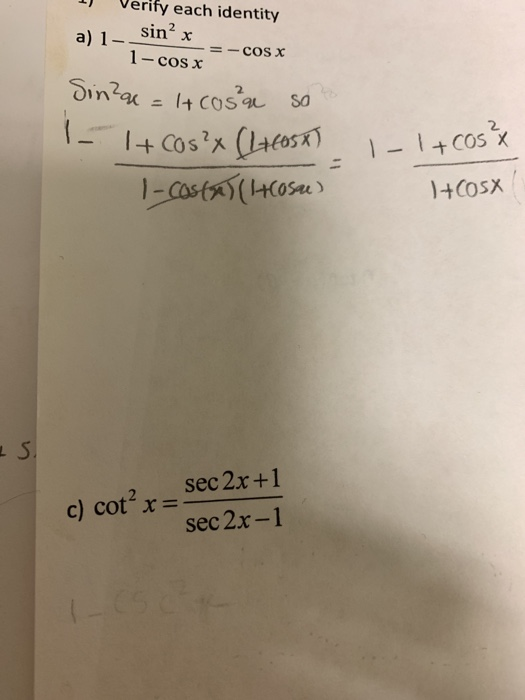 Verify each identity
a) 1 - sin² x / 1 - cos x = - cos x
Sin²x = 1 + cos²x so
1 - 1 + cos²x (1+cosx) / 1 - cos(x) (1+cosx) = 1 - 1 + cos²x / 1+cosx (
5.
c) cot² x = sec 2x + 1 / sec 2x - 1
1 - csc² x